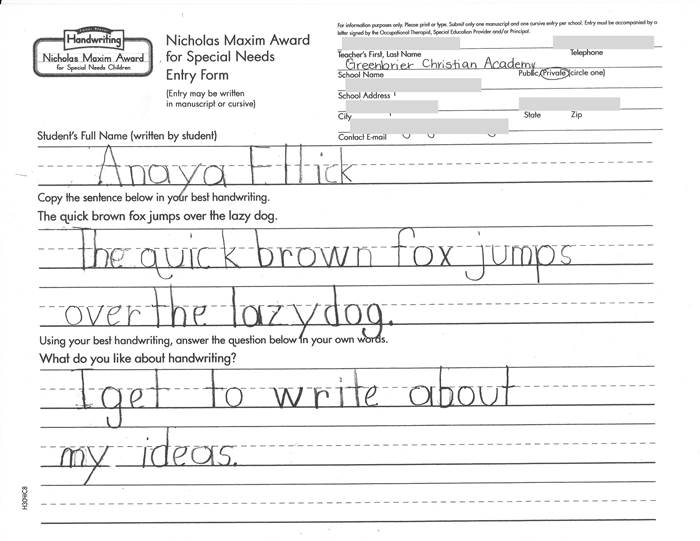 Handwriting
Nicholas Maxim Award
for Special Needs Children
Nicholas Maxim Award
for Special Needs
Entry Form
(Entry may be written
in manuscript or cursive)
For information purposes only. Please print or type. Submit only one manuscript and one cursive entry per school. Entry must be accompanied by a
letter signed by the Occupational Therapist, Special Education Provider and/or Principal.
Teacher's First, Last Name Telephone
Greenbrier Christian Academy
School Name Public/Private (circle one)
School Address
City State Zip
Contact E-mail
Student's Full Name (written by student)
Anaya Ellick
Copy the sentence below in your best handwriting.
The quick brown fox jumps over the lazy dog.
The quick brown fox jumps
over the lazy dog.
Using your best handwriting, answer the question below in your own words.
What do you like about handwriting?
I get to write about
my ideas.